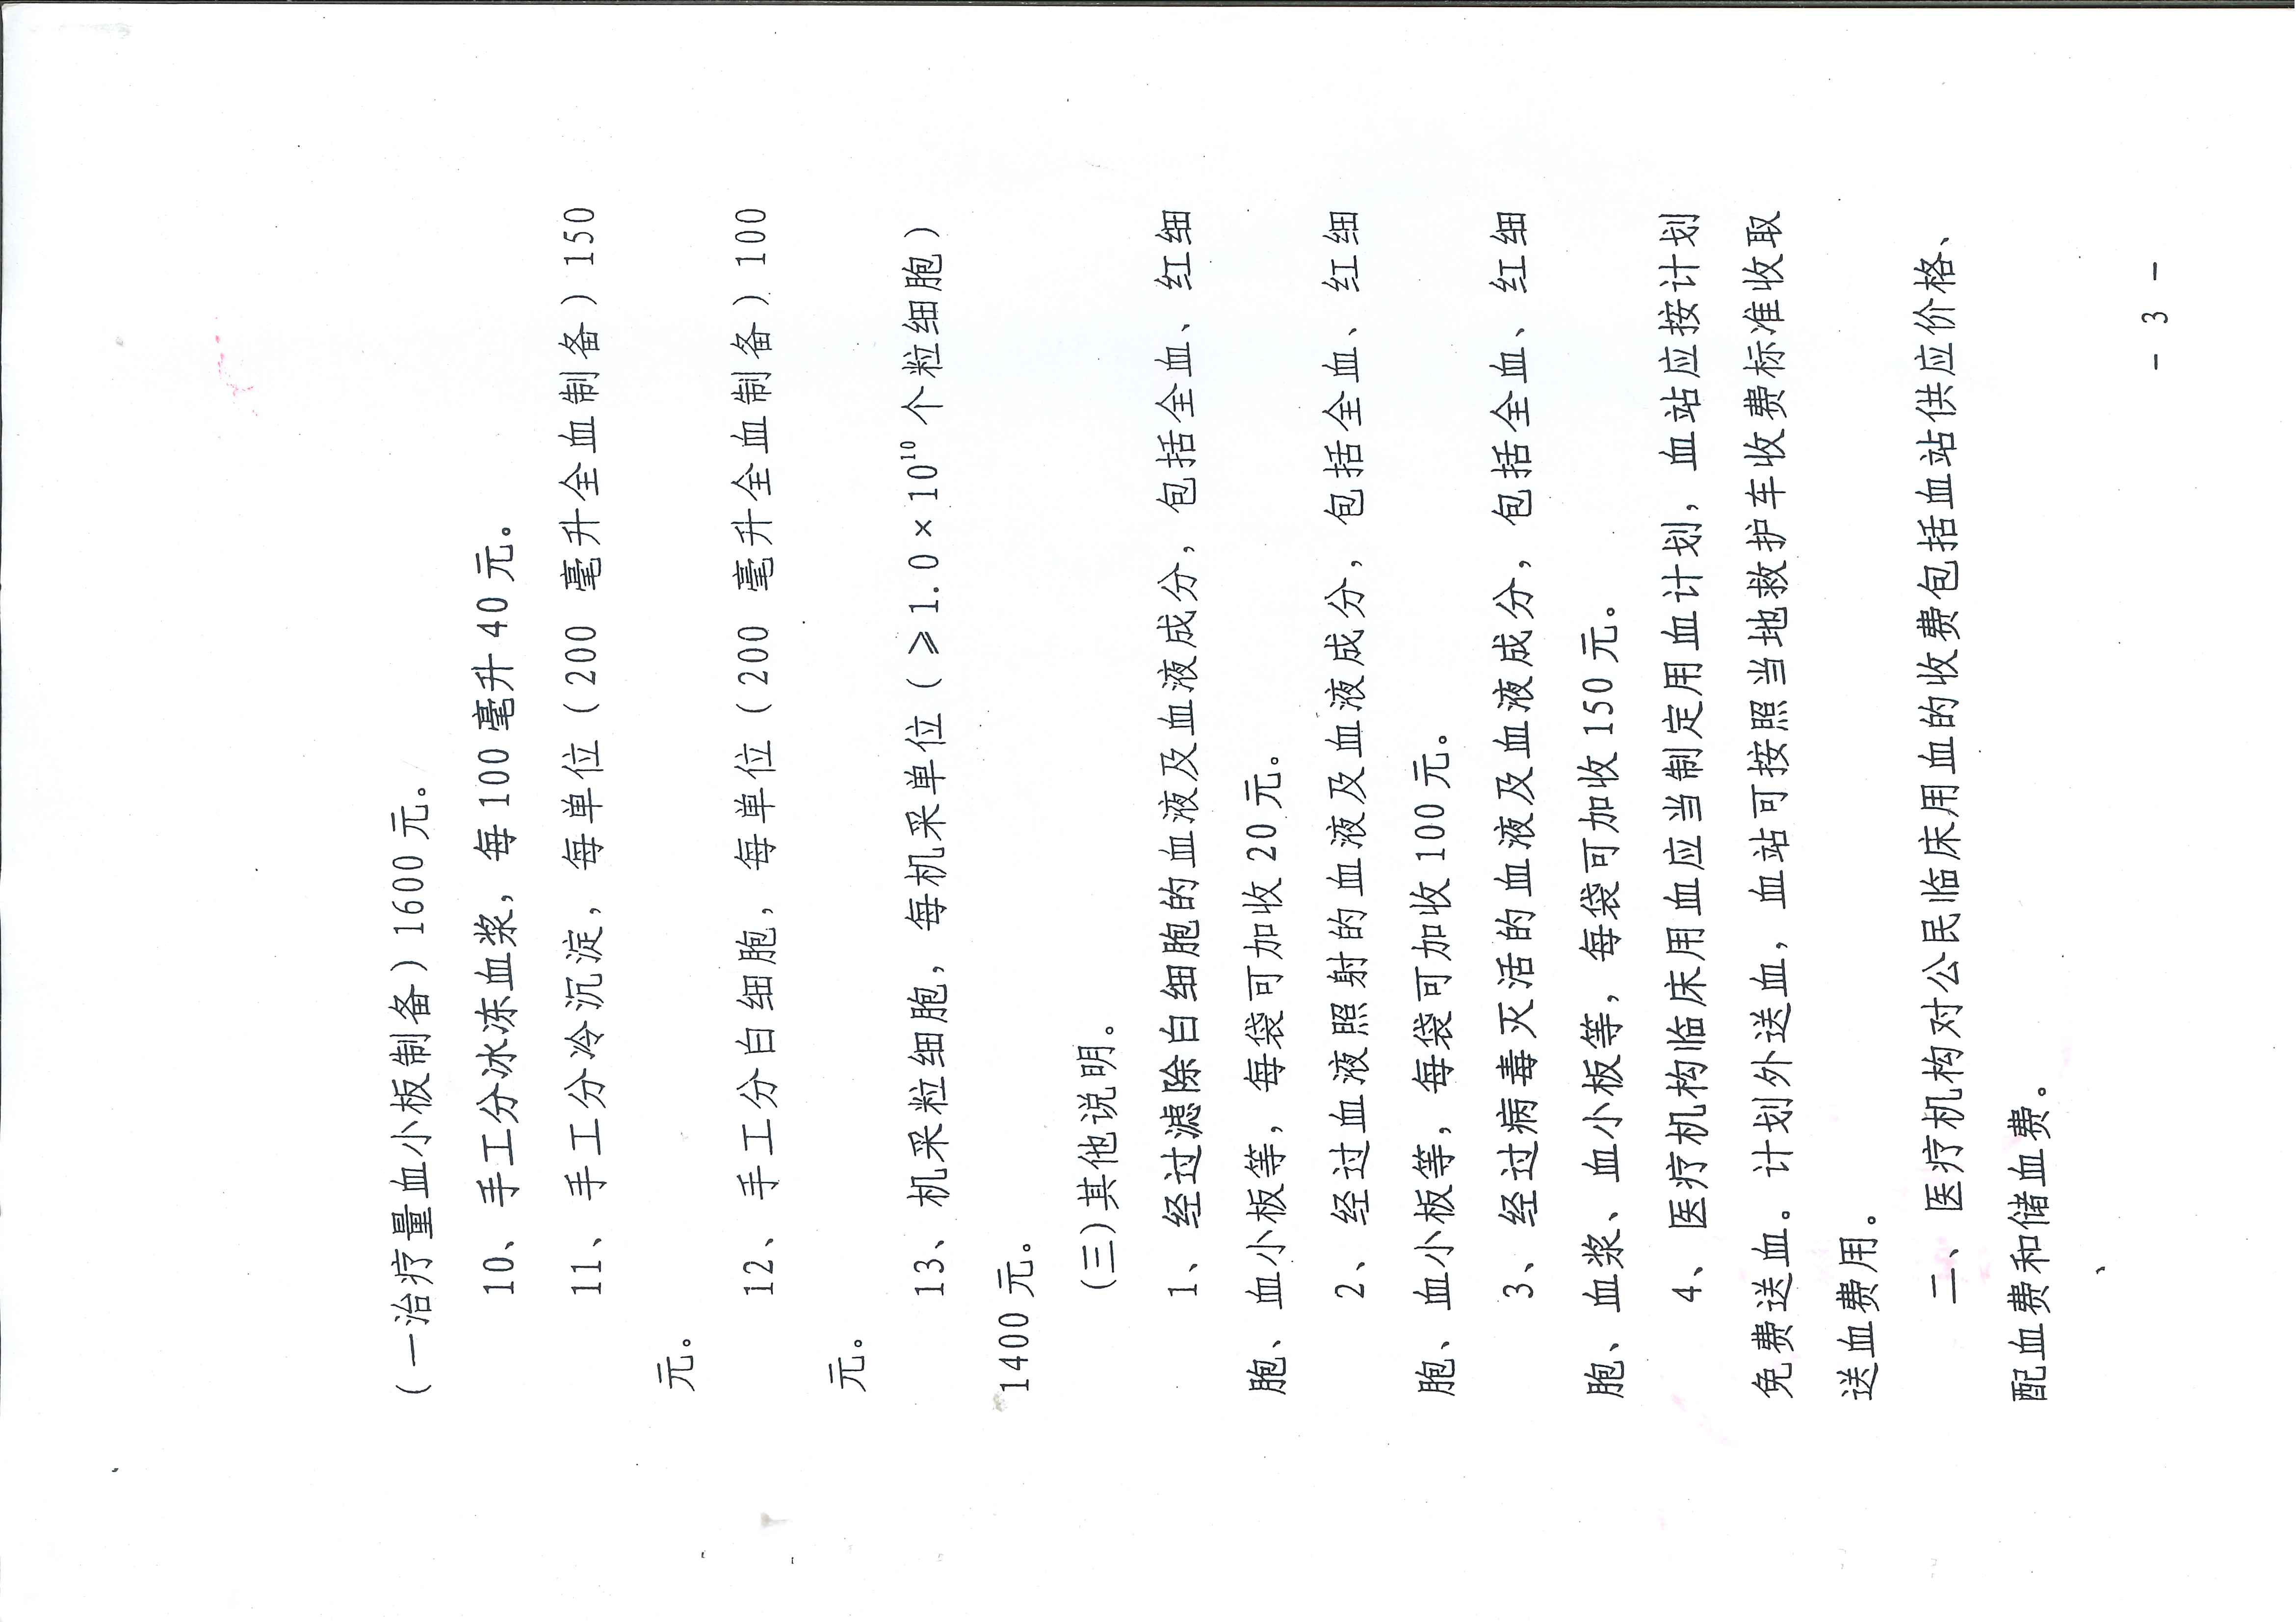 （一治疗量血小板制备）1600元。
10、手工分冰冻血浆，每100毫升40元。
11、手工分冷沉淀，每单位（200 毫升全血制备）150
元。
12、手工分白细胞，每单位（200 毫升全血制备）100
元。
13、机采粒细胞，每机采单位（≥1.0×10¹⁰个粒细胞）
1400元。
（三）其他说明。
1、经过滤除白细胞的血液及血液成分，包括全血、红细
胞、血小板等，每袋可加收20元。
2、经过血液照射的血液及血液成分，包括全血、红细
胞、血小板等，每袋可加收100元。
3、经过病毒灭活的血液及血液成分，包括全血、红细
胞、血浆、血小板等，每袋可加收150元。
4、医疗机构临床用血应当制定用血计划，血站应按计划
免费送血。计划外送血，血站可按照当地救护车收费标准收取
送血费用。
二、医疗机构对公民临床用血的收费包括血站供应价格、
配血费和储血费。
- 3 -